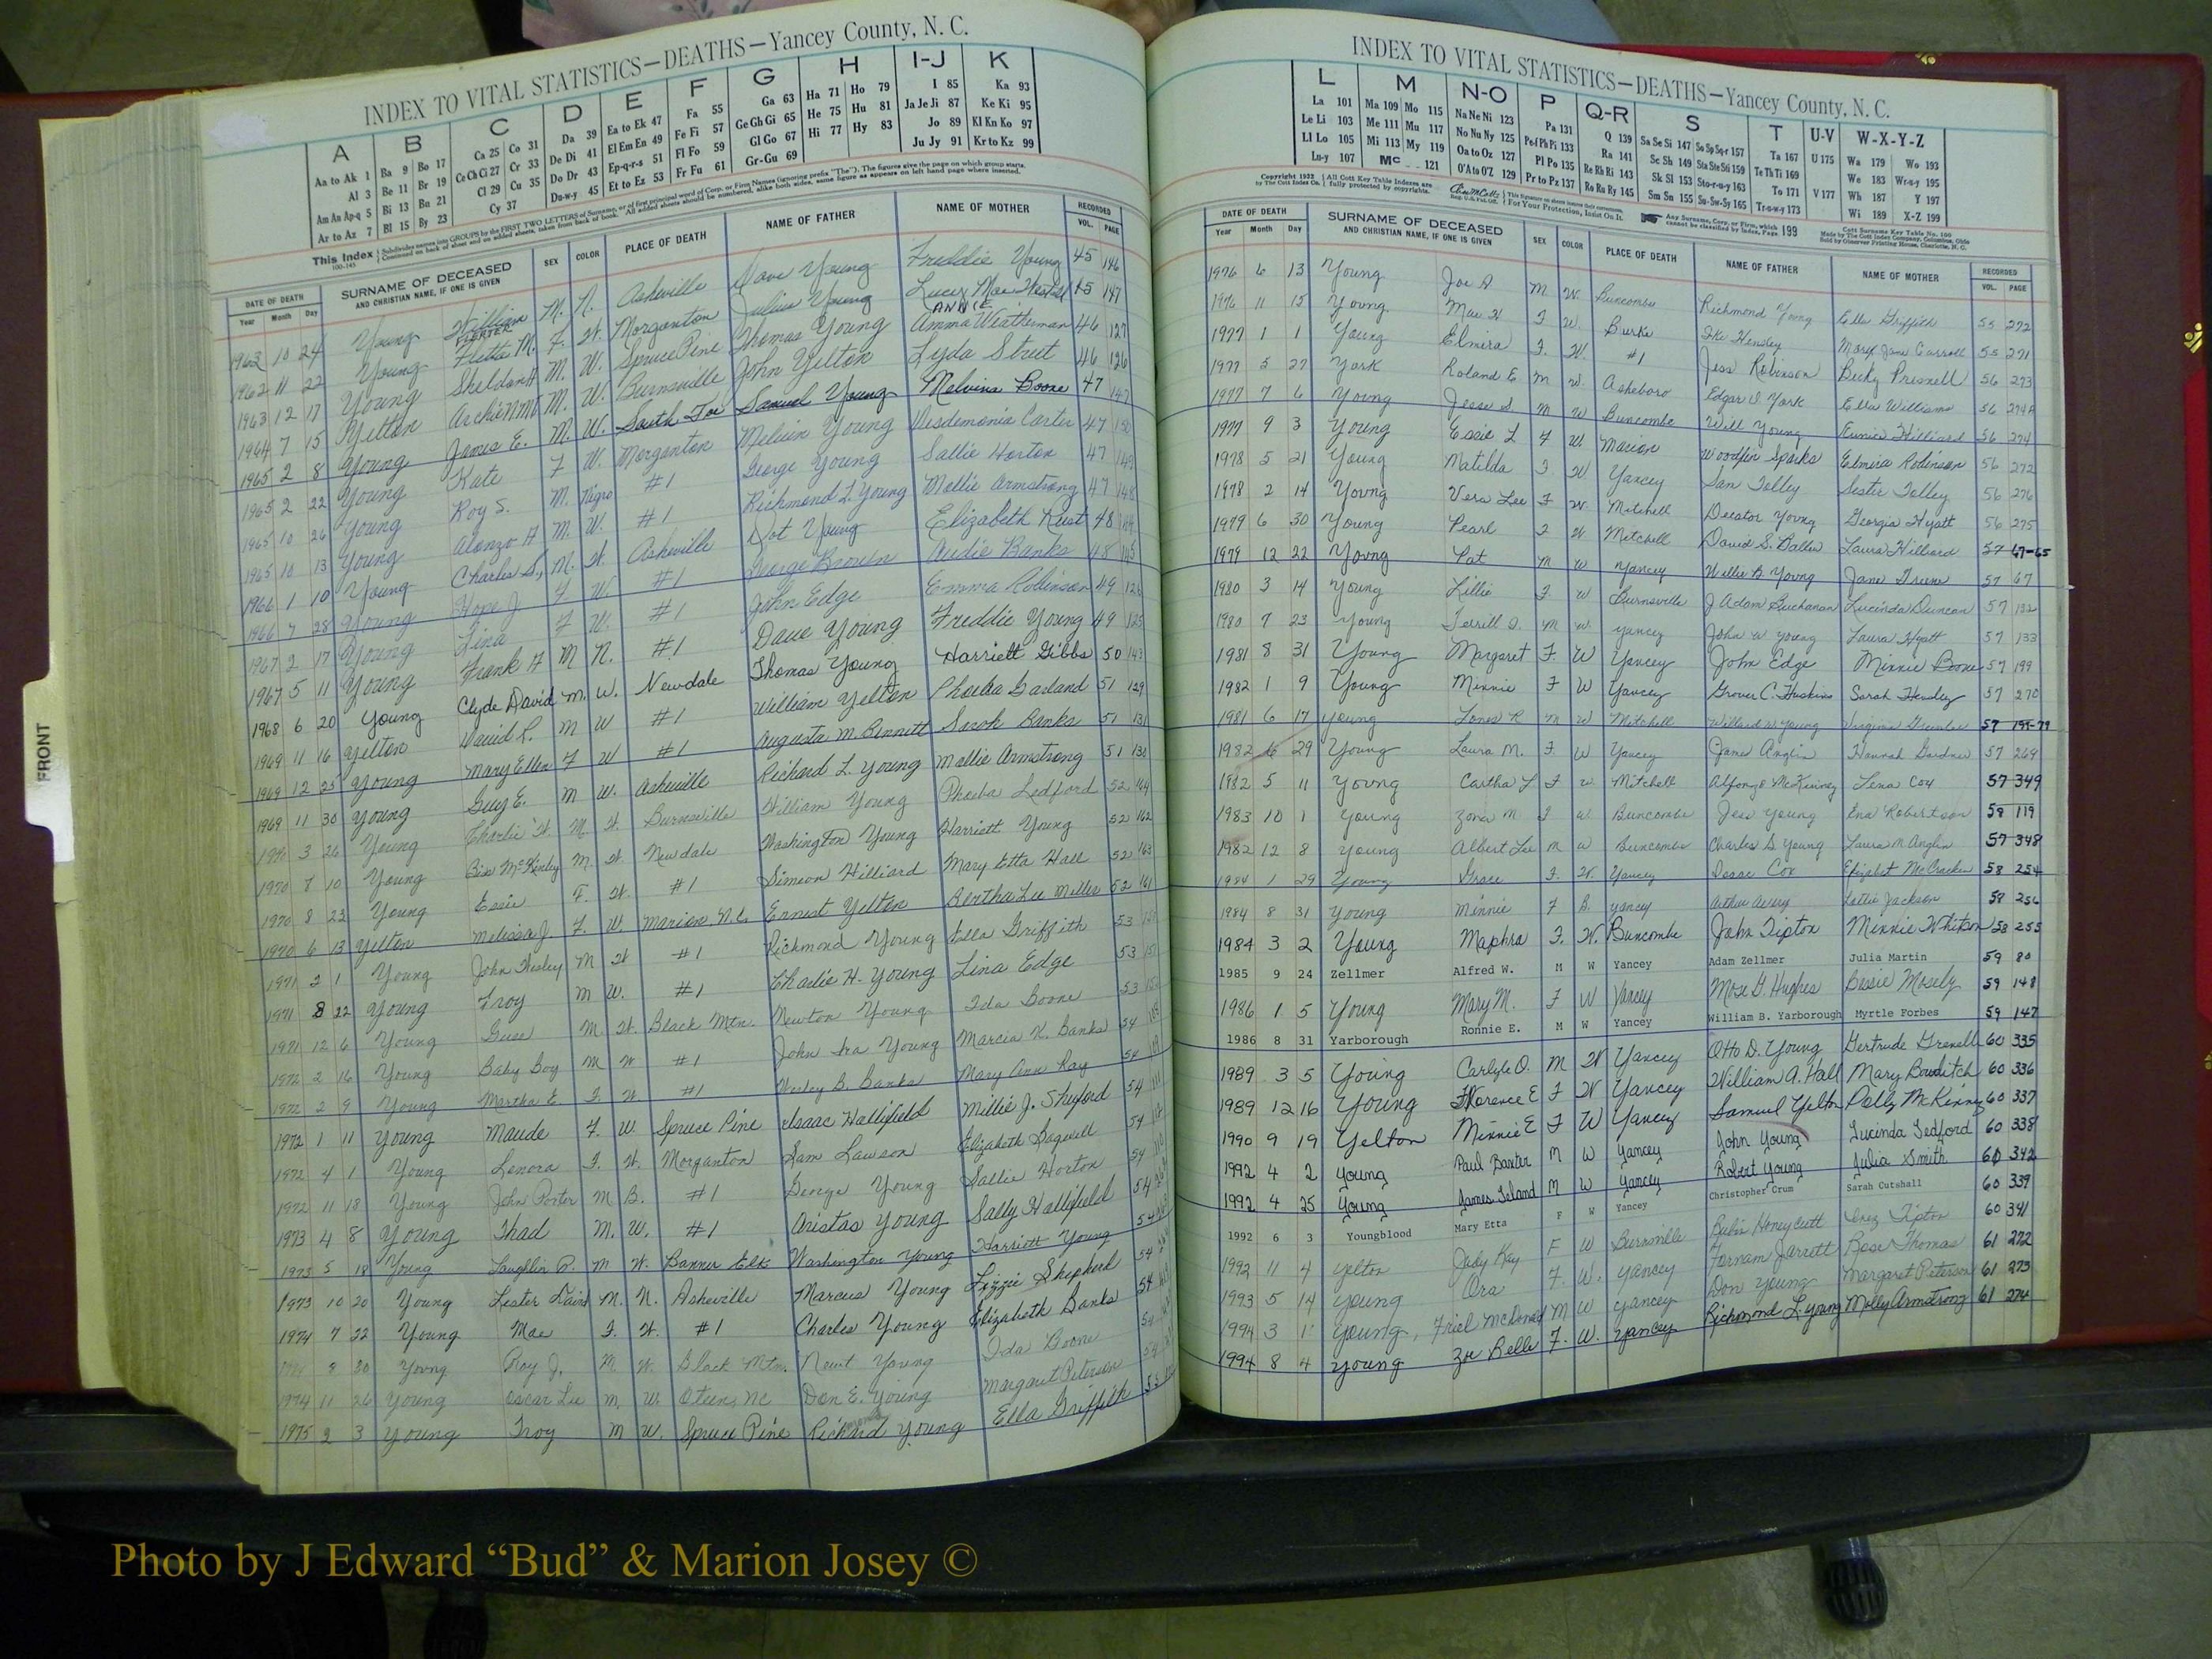 INDEX TO VITAL STATISTICS—DEATHS—Yancey County, N. C.
A B C D E F G H I-J K
Aa to Ak 1 Ba 9 Bo 17 Ca 25 Co 31 Da 39 Ea to Ek 47 Fa 55 Ga 63 Ha 71 Ho 79 I 85 Ka 93
Al 3 Be 11 Br 19 Ce Ch Ci 27 Cr 33 De Di 41 El Em En 49 Fe Fi 57 Ge Gh Gi 65 He 75 Hu 81 Ja Je Ji 87 Ke Ki 95
Am An Ap-q 5 Bi 13 Bu 21 Cl 29 Cu 35 Do Dr 43 Ep-q-r-s 51 Fl Fo 59 Gl Go 67 Hi 77 Hy 83 Jo 89 Kl Kn Ko 97
Ar to Az 7 Bl 15 By 23 Cy 37 Du-w-y 45 Et to Ez 53 Fr Fu 61 Gr-Gu 69 Ju Jy 91 Kr to Kz 99
DATE OF DEATH SURNAME OF DECEASED SEX COLOR PLACE OF DEATH NAME OF FATHER NAME OF MOTHER RECORDED
Year Month Day AND CHRISTIAN NAME, IF ONE IS GIVEN VOL. PAGE
1963 10 24 Young William M. N. Asheville Dave Young Freddie Young 45 146
1962 11 22 Young Fletta M. F. W. Morganton Julius Young Lucy Mae 45 147
1963 12 17 Young Sheldon H M. W. Spruce Pine Thomas Young ANNIE Amma Weatherman 46 127
1964 7 15 Yelton Archie M. W. Burnsville John Yelton Lyda Street 46 126
1965 2 8 Young James E. M. W. South Toe Samuel Young Melvina Boone 47 147
1965 2 22 Young Kate F W. Morganton Melvin Young Desdemonia Carter 47 150
1965 10 26 Young Roy S. M. Negro #1 George Young Sallie Horton 47 149
1965 10 13 Young Alonzo H M. W. #1 Richmond L. Young Mollie Armstrong 47 148
1966 1 10 Young Charles S. M. W. Asheville Dot Young Elizabeth 48
1966 7 28 Young Hope J. F W. #1 George Brown Audie Banks 48 145
1967 2 17 Young Lina F W. #1 John Edge Emma Robinson 49 126
1967 5 11 Young Frank H M N. #1 Dave Young Freddie Young 49 125
1968 6 20 Young Clyde David M. W. Newdale Thomas Young Harriett Gibbs 50 143
1969 11 16 Yelton David R. M W #1 William Yelton Phoeba Garland 51 129
1969 12 25 Young Mary Ellen F W #1 Augusta M. Bennett Sarah Banks 51 131
1969 11 30 Young Guy E. M W. Asheville Richard L. Young Mollie Armstrong 51 130
1970 3 26 Young Charlie H. M. W. Burnsville William Young Phoeba Ledford 52 164
1970 7 10 Young McKinley M. W. Newdale Washington Young Harriett Young 52 162
1970 8 23 Young Essie F. W. #1 Simeon Hilliard Mary Etta Hall 52 163
1970 6 13 Yelton Melissa J. F. W. Marion, N.C. Ernest Yelton Bertha Lee Miller 52 161
1971 2 1 Young John Wesley M W #1 Richmond Young Ella Griffith 53
1971 8 22 Young Troy M W. #1 Charlie H. Young Lina Edge 53
1971 12 6 Young M. W. Black Mtn. Newton Young Ida Boone 53
1972 2 16 Young Baby Boy M W #1 John Ira Young Marcia K. Banks 54
1972 2 9 Young Martha E. F. W #1 Wesley B. Banks Mary Ann Ray 54
1972 1 11 Young Maude F. W. Spruce Pine Isaac Hallifield Millie J. Shuford 54 111
1972 4 1 Young Lenora F. W. Morganton Sam Lawson Elizabeth Bagwell 54
1972 11 18 Young John Porter M B. #1 George Young Sallie Horton 54 110
1973 4 8 Young Thad M. W. #1 Aristas Young Sally Hallifield 54
1973 5 18 Young Laughlin P. M W. Banner Elk Washington Young Harriett Young 54
1973 10 20 Young Lester David M. N. Asheville Marcus Young Lizzie Shepherd 54
1974 7 22 Young Mae F. W. #1 Charles Young Elizabeth Banks 54
8 20 Young Roy J. M W. Black Mtn. Newt Young Ida Boone 54
1974 11 26 Young Oscar Lee M. W. Oteen, NC Don E. Young Margaret Peterson 54
1975 2 3 Young Troy M W. Spruce Pine Richmond Young Ella Griffith 55
FRONT
INDEX TO VITAL STATISTICS—DEATHS—Yancey County, N. C.
L M N-O P Q-R S T U-V W-X-Y-Z
La 101 Ma 109 Mo 115 Na Ne Ni 123 Pa 131 Q 139 Sa Se Si 147 So Sp Sq-r 157 Ta 167 U 175 Wa 179 Wo 193
Le Li 103 Me 111 Mu 117 No Nu Ny 125 Pe-f Ph Pi 133 Ra 141 Sc Sh 149 Sta Ste Sti 159 Te Th Ti 169 We 183 Wr-u-y 195
Ll Lo 105 Mi 113 My 119 Oa to Oz 127 Pl Po 135 Re Rh Ri 143 Sk Sl 153 Sto-r-u-y 163 To 171 V 177 Wh 187 Y 197
Lu-y 107 Mc 121 O'A to O'Z 129 Pr to Pz 137 Ro Ru Ry 145 Sm Sn 155 Su-Sw-Sy 165 Tr-u-w-y 173 Wi 189 X-Z 199
DATE OF DEATH SURNAME OF DECEASED SEX COLOR PLACE OF DEATH NAME OF FATHER NAME OF MOTHER RECORDED
Year Month Day AND CHRISTIAN NAME, IF ONE IS GIVEN VOL. PAGE
1976 6 13 Young Joe A M W. Buncombe Richmond Young Ella Griffith 55 272
1976 11 15 Young Mae H F W. Burke Ike Hensley Mary Jane Carroll 55 271
1977 1 1 Young Elmira F. W. #1 Jess Robinson Becky Presnell 56 273
1977 5 27 York Roland E M W. Asheboro Edgar D. York Ella Williams 56 274A
1977 7 6 Young Jesse S. M W Buncombe Will Young Eunice Hilliard 56 274
1977 9 3 Young Essie L F W Marion Woodfin Sparks Elmira Robinson 56 272
1978 5 21 Young Matilda F. W Yancey Dan Tolley Sester Tolley 56 276
1978 2 14 Young Vera Lee F W Mitchell Decator Young Georgia Hyatt 56 275
1979 6 30 Young Pearl F W Mitchell David S. Ballew Laura Hilliard 57 67-65
1979 12 22 Young Pat M W Yancey Willie B. Young Jane Greene 57 67
1980 3 14 Young Lillie F W Burnsville J Adam Buchanan Lucinda Duncan 57 132
1980 7 23 Young Terrill D. M W. Yancey John W Young Laura Hyatt 57 133
1981 8 31 Young Margaret F. W Yancey John Edge Minnie Boone 57 199
1982 1 9 Young Minnie F W Yancey Grover C. Huskins Sarah Hensley 57 270
1981 6 17 Young Jones R M W Mitchell Willard W. Young Virginia 57
1982 6 29 Young Laura M. F. W Yancey James Anglin Hannah Gardner 57 269
1982 5 11 Young Cartha L F W Mitchell Alfonzo McKinney Lena Cox 57 349
1983 10 1 Young Zona M F W Buncombe Jess Young Ena Robertson 58 119
1982 12 8 Young Albert Lee M W Buncombe Charles S. Young Laura M Anglin 57 348
1984 1 29 Young Grace F. W. Yancey Isaac Cox Elizabet McCracken 58 254
1984 8 31 Young Minnie F B. Yancey Arthur Avery Lottie Jackson 58 256
1984 3 2 Young Maphra F. W. Buncombe John Tipton Minnie Whitson 58 255
1985 9 24 Zellmer Alfred W. M W Yancey Adam Zellmer Julia Martin 59 80
1986 1 5 Young Mary M. F W Yancey Mose G. Hughes Bessie Mosely 59 148
1986 8 31 Yarborough Ronnie E. M W Yancey William B. Yarborough Myrtle Forbes 59 147
1989 3 5 Young Carlyle O. M W Yancey Otto D. Young Gertrude 60 335
1989 12 16 Young Florence E F W Yancey William A. Hall Mary Bowditch 60 336
1990 9 19 Yelton Minnie E F W Yancey Samuel Yelton Polly McKinney 60 337
1992 4 2 Young Paul Baxter M W Yancey John Young Lucinda Ledford 60 338
1992 4 25 Young James Leland M W Yancey Robert Young Julia Smith 60 342
1992 6 3 Youngblood Mary Etta F W Yancey Christopher Crum Sarah Cutshall 60 339
1992 11 4 Yelton Judy Kay F W Burnsville Rubin Honeycutt Inez Tipton 60 341
1993 5 14 Young Ora F. W. Yancey Farnam Jarrett Rose Thomas 61 272
1994 3 1 Young, Friel McDonald M W Yancey Don Young Margaret Peterson 61 273
1994 8 4 Young Zoe Belle F. W. Yancey Richmond L. Young Molly Armstrong 61 274
Photo by J Edward “Bud” & Marion Josey ©